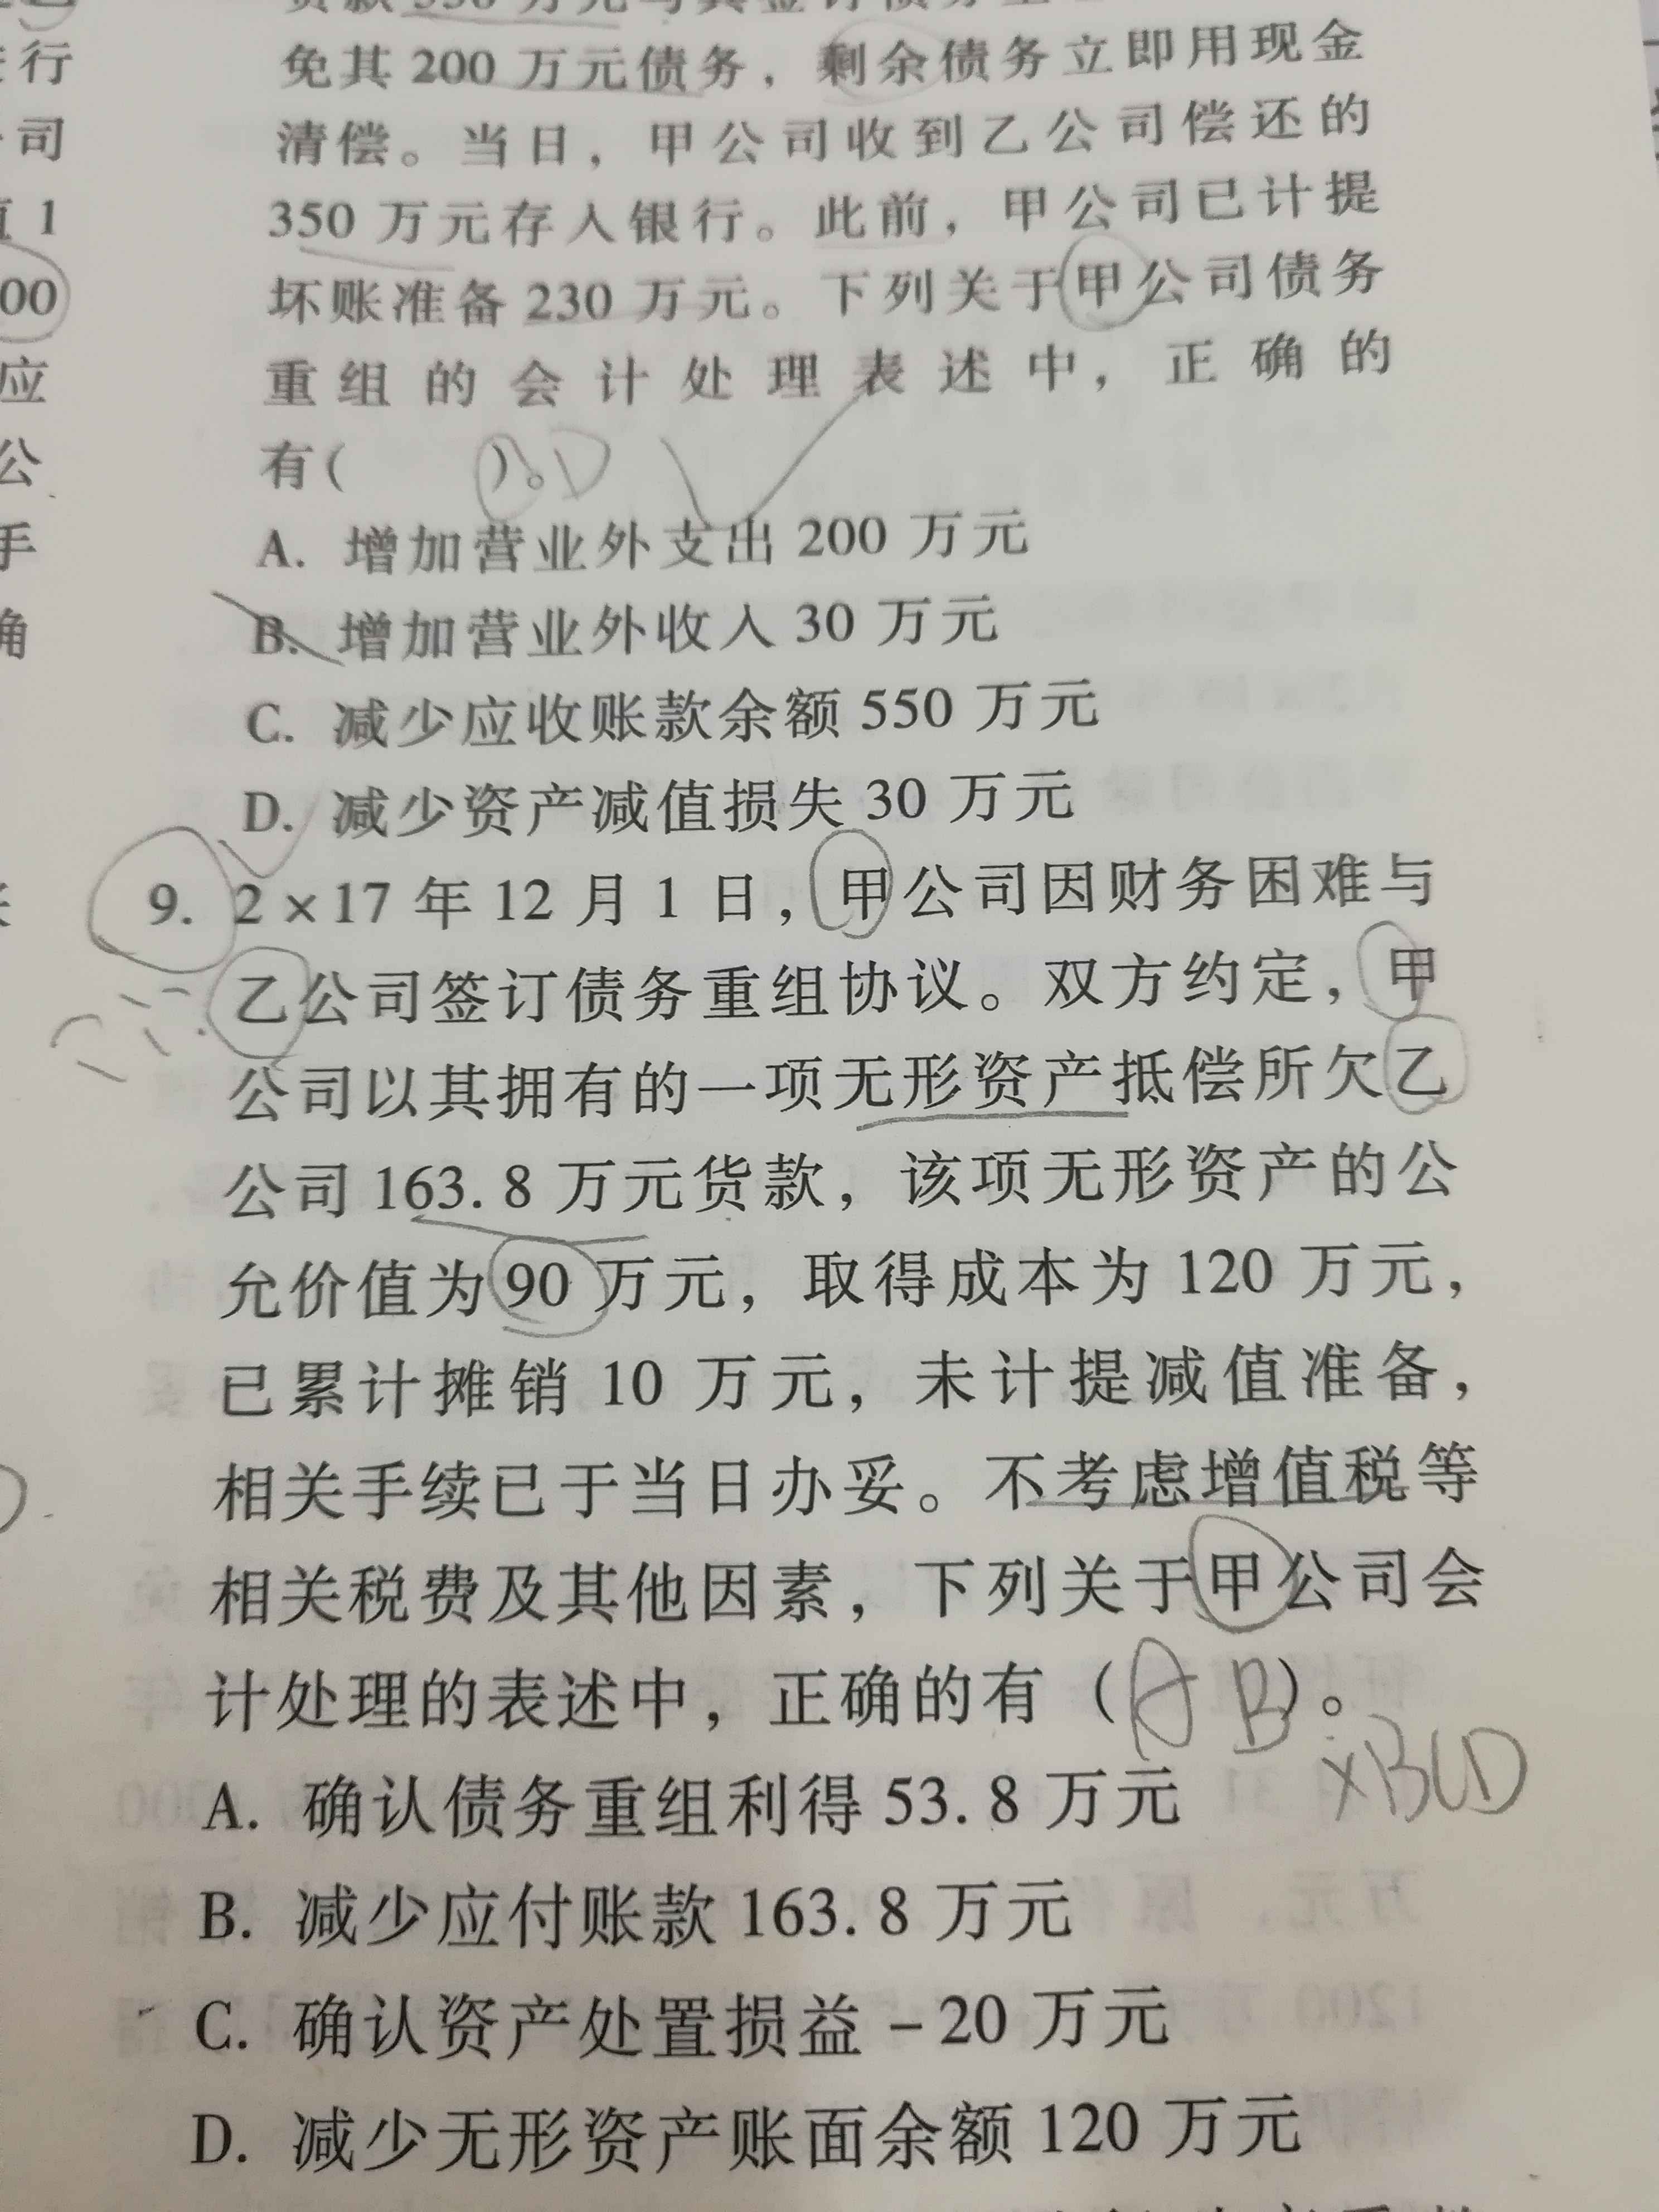 免其 200 万元债务，剩余债务立即用现金
清偿。当日，甲公司收到乙公司偿还的
350 万元存入银行。此前，甲公司已计提
坏账准备 230 万元。下列关于甲公司债务
重组的会计处理表述中，正确的
有(　　)。D
A. 增加营业外支出 200 万元
B. 增加营业外收入 30 万元
C. 减少应收账款余额 550 万元
D. 减少资产减值损失 30 万元
9. 2×17 年 12 月 1 日，甲公司因财务困难与
乙公司签订债务重组协议。双方约定，甲
公司以其拥有的一项无形资产抵偿所欠乙
公司 163.8 万元货款，该项无形资产的公
允价值为 90 万元，取得成本为 120 万元，
已累计摊销 10 万元，未计提减值准备，
相关手续已于当日办妥。不考虑增值税等
相关税费及其他因素，下列关于甲公司会
计处理的表述中，正确的有（A B）。
×BCD
A. 确认债务重组利得 53.8 万元
B. 减少应付账款 163.8 万元
C. 确认资产处置损益 -20 万元
D. 减少无形资产账面余额 120 万元
行
司
值 1
00
应
公
手
确